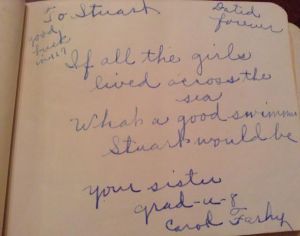 To Stuart
Datid
forever
good
luck
in
If all the girls
lived across the
sea
What a good swimmer
Stuart would be
your sister
grad-u-8
Carol